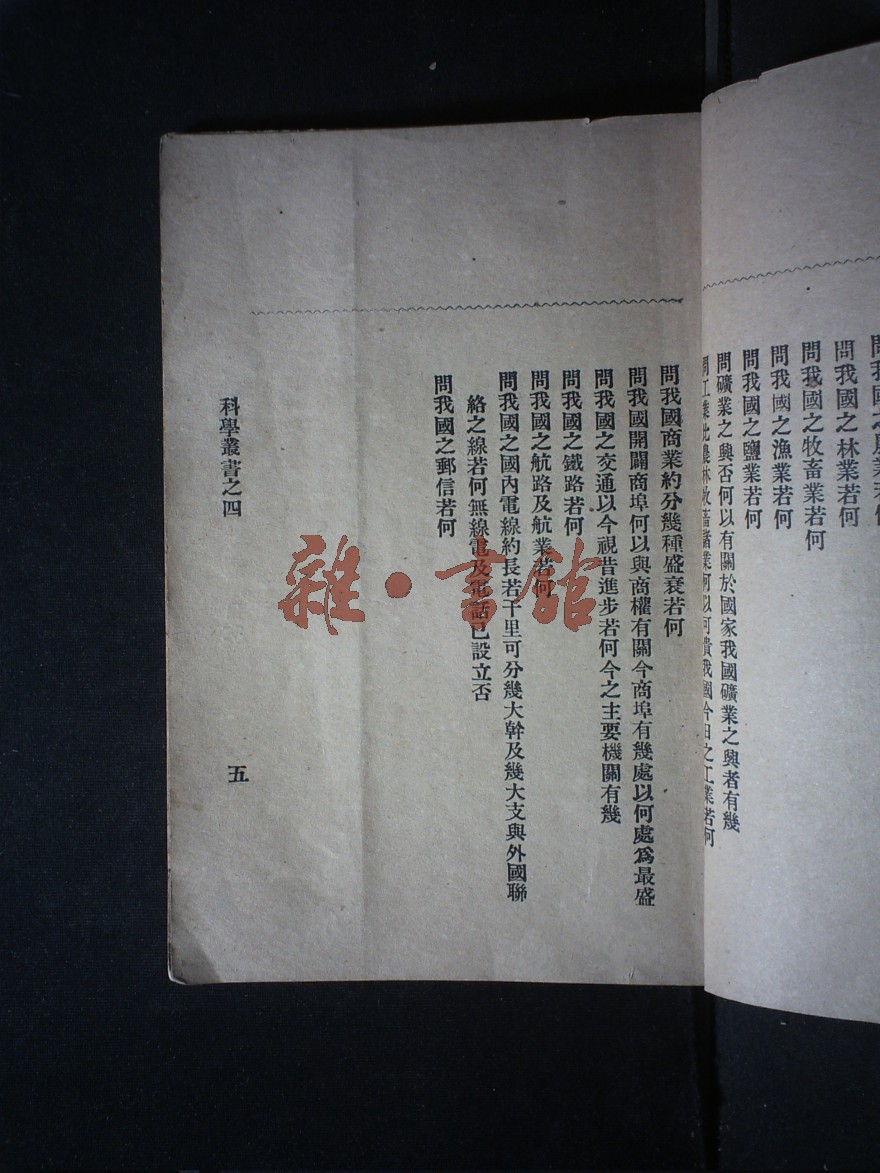 問我國之林業若何
問我國之牧畜業若何
問我國之漁業若何
問我國之鹽業若何
問礦業之興否何以有關於國家我國礦業之興者有幾
問工業比農林牧畜諸業何以可貴我國今日之工業若何
問我國商業約分幾種盛衰若何
問我國開闢商埠何以與商權有關今商埠有幾處以何處爲最盛
問我國之交通以今視昔進步若何今之主要機關有幾
問我國之鐵路若何
問我國之航路及航業若何
問我國之國內電線約長若干里可分幾大幹及幾大支與外國聯
絡之線若何無線電及電話已設立否
問我國之郵信若何
科學叢書之四
五
雜·書館